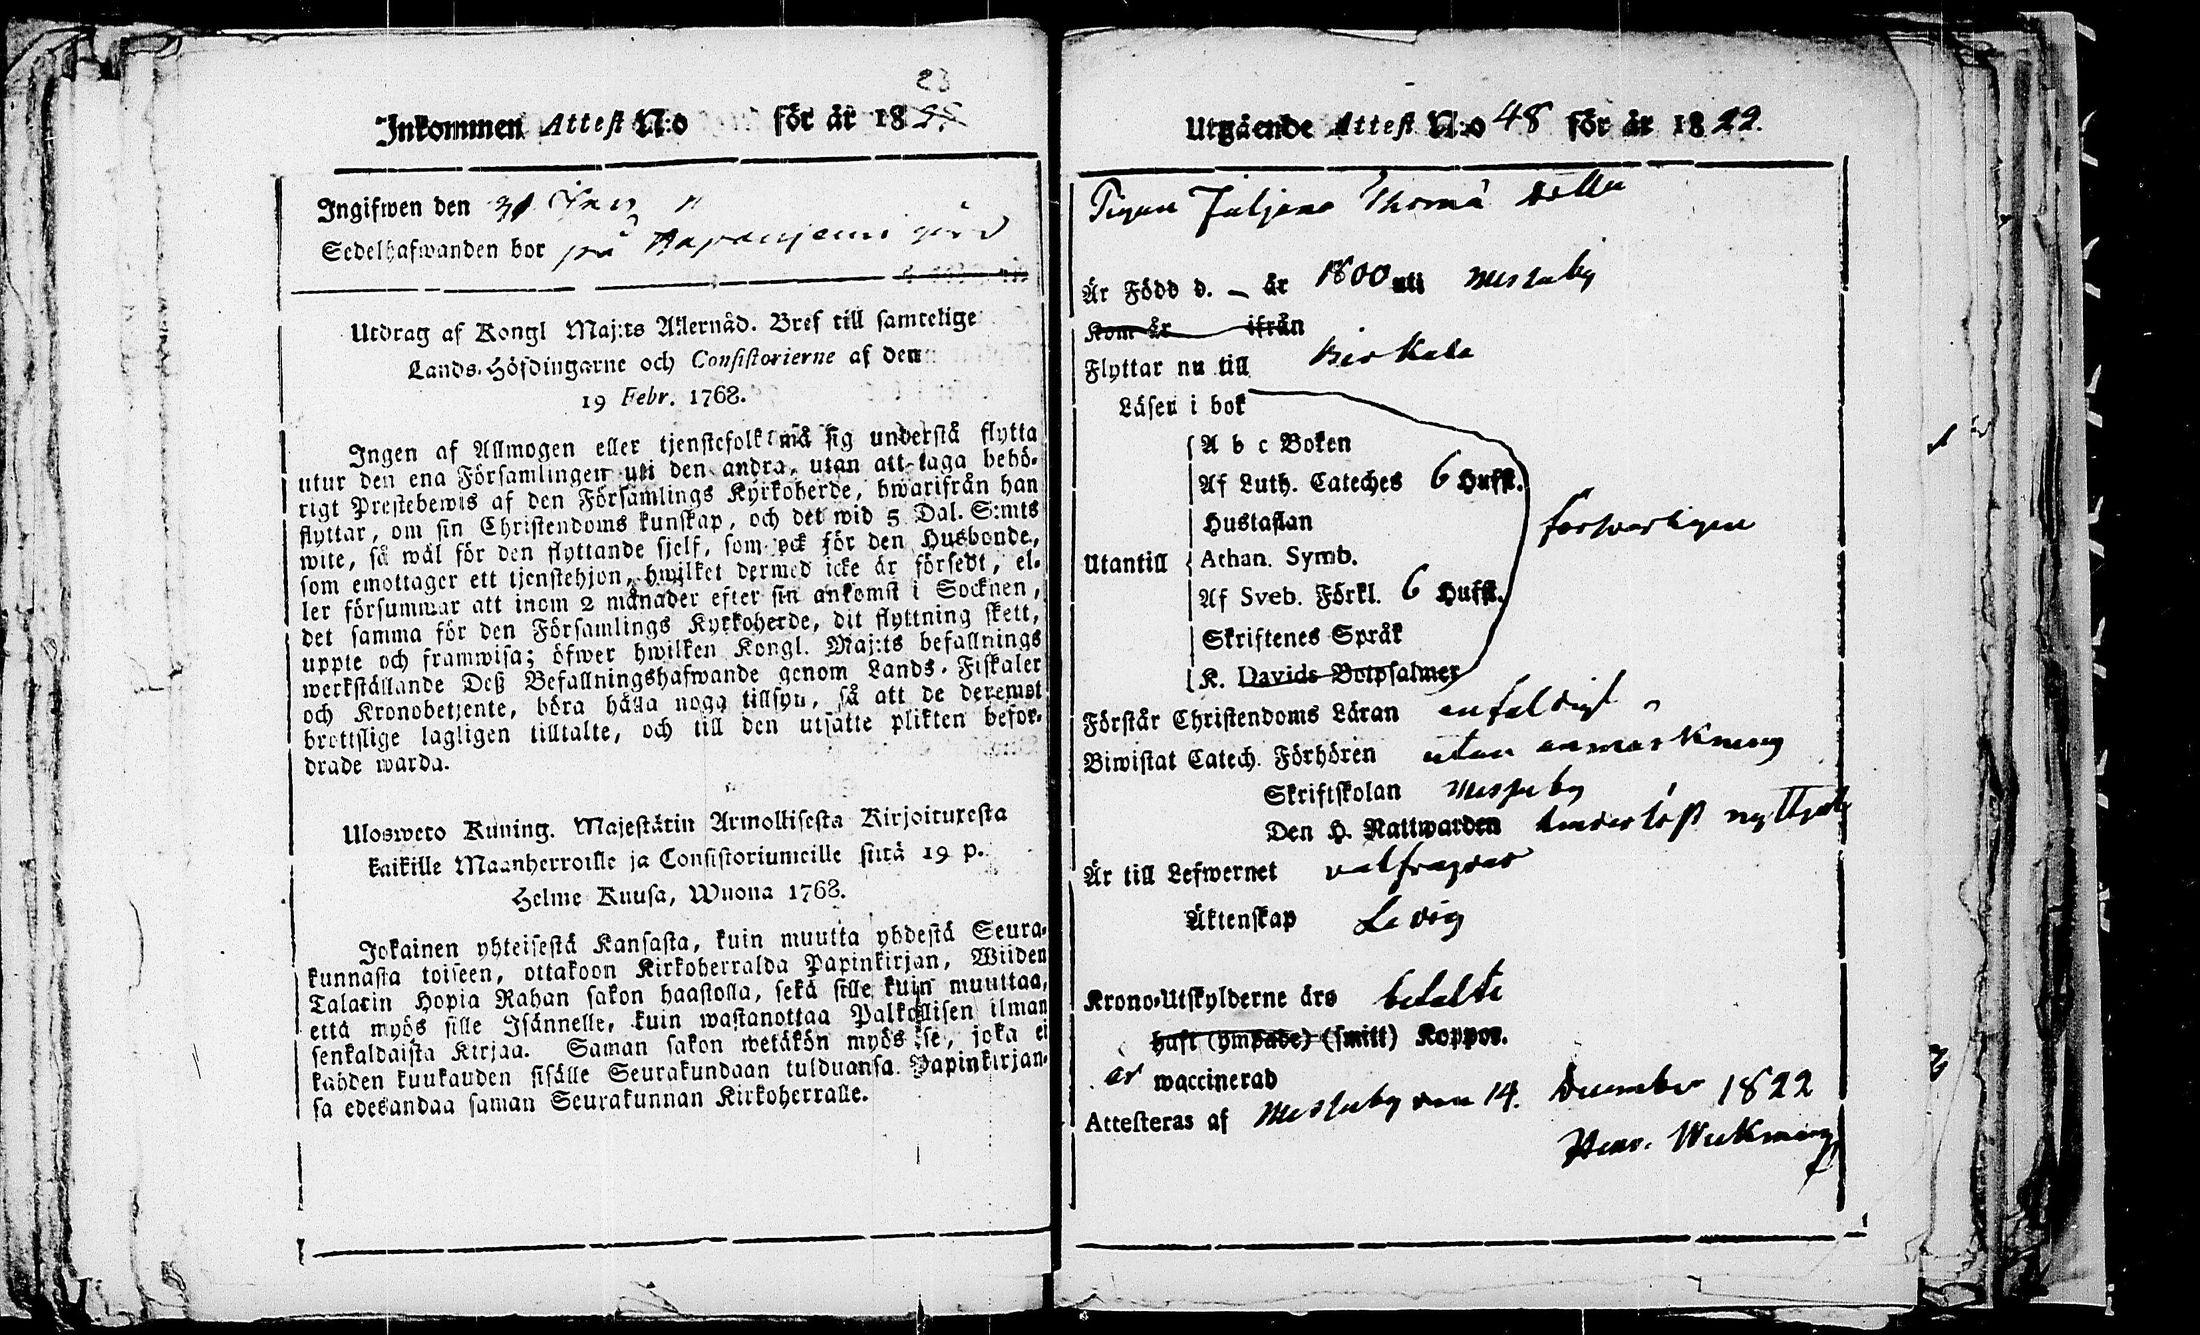 23
Inkommen Attest N:o för år 18
Ingifwen den
Sedelhafwanden bor på Haapaniemi gård
Utdrag af Kongl Maj:ts Allernåd. Bref till samtelige
Lands-Höfdingarne och Consistorierne af den
19 Febr. 1768.
Ingen af Allmogen eller tjenstefolk må sig understå flytta
utur den ena Församlingen uti den andra, utan att taga behö-
rigt Prestebewis af den Församlings Kyrkoherde, hwarifrån han
flyttar, om sin Christendoms kunskap, och det wid 5 Dal. S:mts
wite, så wäl för den flyttande sjelf, som ock för den Husbonde,
som emottager ett tjenstehjon, hwilket dermed icke är försedt, el-
ler försummar att inom 2 månader efter sin ankomst i Socknen,
det samma för den Församlings Kyrkoherde, dit flyttning skett,
uppte och framwisa; öfwer hwilken Kongl. Maj:ts befallnings
werkställande Deß Befallningshafwande genom Lands-Fiskaler
och Kronobetjente, böra hålla noga tillsyn, så att de deremot
brottslige lagligen tilltalte, och till den utsatte plikten befor-
drade warda.
Ulosweto Kuning. Majestätin Armollisesta Kirjoituxesta
kaikille Maanherroille ja Consistoriumeille siitä 19 p.
Helme Kuusa, Wuona 1768.
Jokainen yhteisestä Kansasta, kuin muutta yhdestä Seura-
kunnasta toiseen, ottakoon Kirkoherralda Papinkirjan, Wiiden
Talarin Hopia Rahan sakon haastolla, sekä sille kuin muuttaa,
että myös sille Isännelle, kuin wastanottaa Palkollisen ilman
senkaldaista Kirjaa. Saman sakon wetäkön myös se, joka ei
kahden kuukauden sisälle Seurakundaan tulduansa Papinkirjan-
sa edesandaa saman Seurakunnan Kirkoherralle.
Utgående Attest N:o 48 för år 1822.
Pigan Juljana Thomä
Är Född d. – år 1800 uti Messuby
Kom år ifrån
Flyttar nu till Birkala
Läsen i bok
A b c Boken
Af Luth. Cateches 6 Hufst.
Hustaflan
försvarligen
Utantill
Athan. Symb.
Af Sveb. Förkl. 6 Hufst.
Skriftenes Språk
K. Davids Botpsalmer
Förstår Christendoms Läran enfaldigt
Biwistat Catech. Förhören utan anmärkning
Skriftskolan Messuby
Den H. Nattwarden
Är till Lefwernet välfrägdad
Äktenskap Ledig
Krono-Utskylderne äro betalte
haft (ympade) (smitt) Koppor.
är waccinerad
Attesteras af Messuby den 14. December 1822